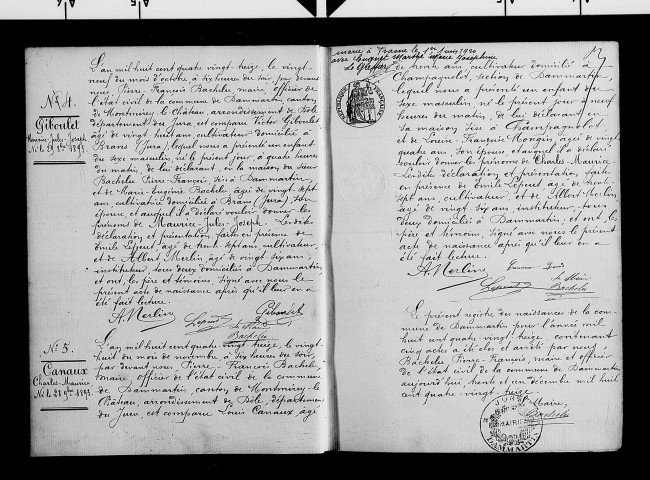 L'an mil huit cent quatre vingt treize, le vingt-
neuf du mois d'octobre à six heures du soir, par devant
nous Pierre-François Bachelu, maire, officier de
l'état civil de la commune de Dammartin, canton
de Montmirey le Château, arrondissement de Dôle
département du Jura, est comparu Victor Giboulet
âgé de vingt huit ans, cultivateur domicilié à
Brans (Jura), lequel nous a présenté un enfant
du sexe masculin, né le présent jour, à quatre heures
du matin, de lui déclarant, en la maison du sieur
Bachelu Pierre-François, sise à Dammartin,
et de Marie-Eugénie Bachelu, âgée de vingt-sept
ans cultivatrice domiciliée à Brans (Jura), son
épouse, et auquel il a déclaré vouloir donner les
prénoms de Maurice-Jules-Joseph. Lesdites
déclaration et présentation faites en présence de
Emile Lépeut, âgé de trente sept ans, cultivateur,
et de Albert Merlin âgé de vingt-six ans,
instituteur, tous deux domiciliés à Dammartin,
et ont, les père et témoins, signé avec nous le
présent acte de naissance après qu'il leur en a
été fait lecture.
A. Merlin Lépeut Giboulet
Le Maire
Bachelu
N° 4.
Giboulet
Maurice-Jules-Joseph
N° 5.
Canaux
Charles-Maurice
Né le 28 9bre 1893.
L'an mil huit cent quatre vingt treize, le vingt-
huit du mois de novembre à six heures du soir,
par devant nous, Pierre-François Bachelu
maire, officier de l'état civil de la commune
de Dammartin, canton de Montmirey-le
Château, arrondissement de Dôle, département
du Jura, est comparu Louis Canaux, âgé
Marié à Fraisne le 1er Juin 1920
avec Marthe Marie Josephine
Le Greffier
de trente ans, cultivateur domicilié à
Champagnolot, section de Dammartin,
lequel nous a présenté un enfant du
sexe masculin, né le présent jour à neuf
heures du matin, de lui déclarant en
sa maison sise à Champagnolot,
et de Louise-Françoise Mongin âgée de vingt-
quatre ans, son épouse, et auquel il a déclaré
vouloir donner les prénoms de Charles-Maurice
Lesdites déclaration et présentation faites
en présence de Emile Lépeut âgé de trente
sept ans, cultivateur, et de Albert Merlin,
âgé de vingt six ans, instituteur, tous
deux domiciliés à Dammartin, et ont, les
père et témoins, signé avec nous le présent
acte de naissance après qu'il leur en a
été fait lecture.
A. Merlin
Le Maire
Lépeut Bachelu
Le présent registre des naissances de la com-
mune de Dammartin pour l'année mil
huit cent quatre vingt treize, contenant
cinq actes a été clos et arrêté par nous
Bachelu Pierre-François, maire et officier
de l'état civil de la commune de Dammartin
aujourd'hui trente et un décembre mil huit
cent quatre-vingt treize.
Le Maire,
Bachelu
JURA
MAIRIE
DAMMARTIN